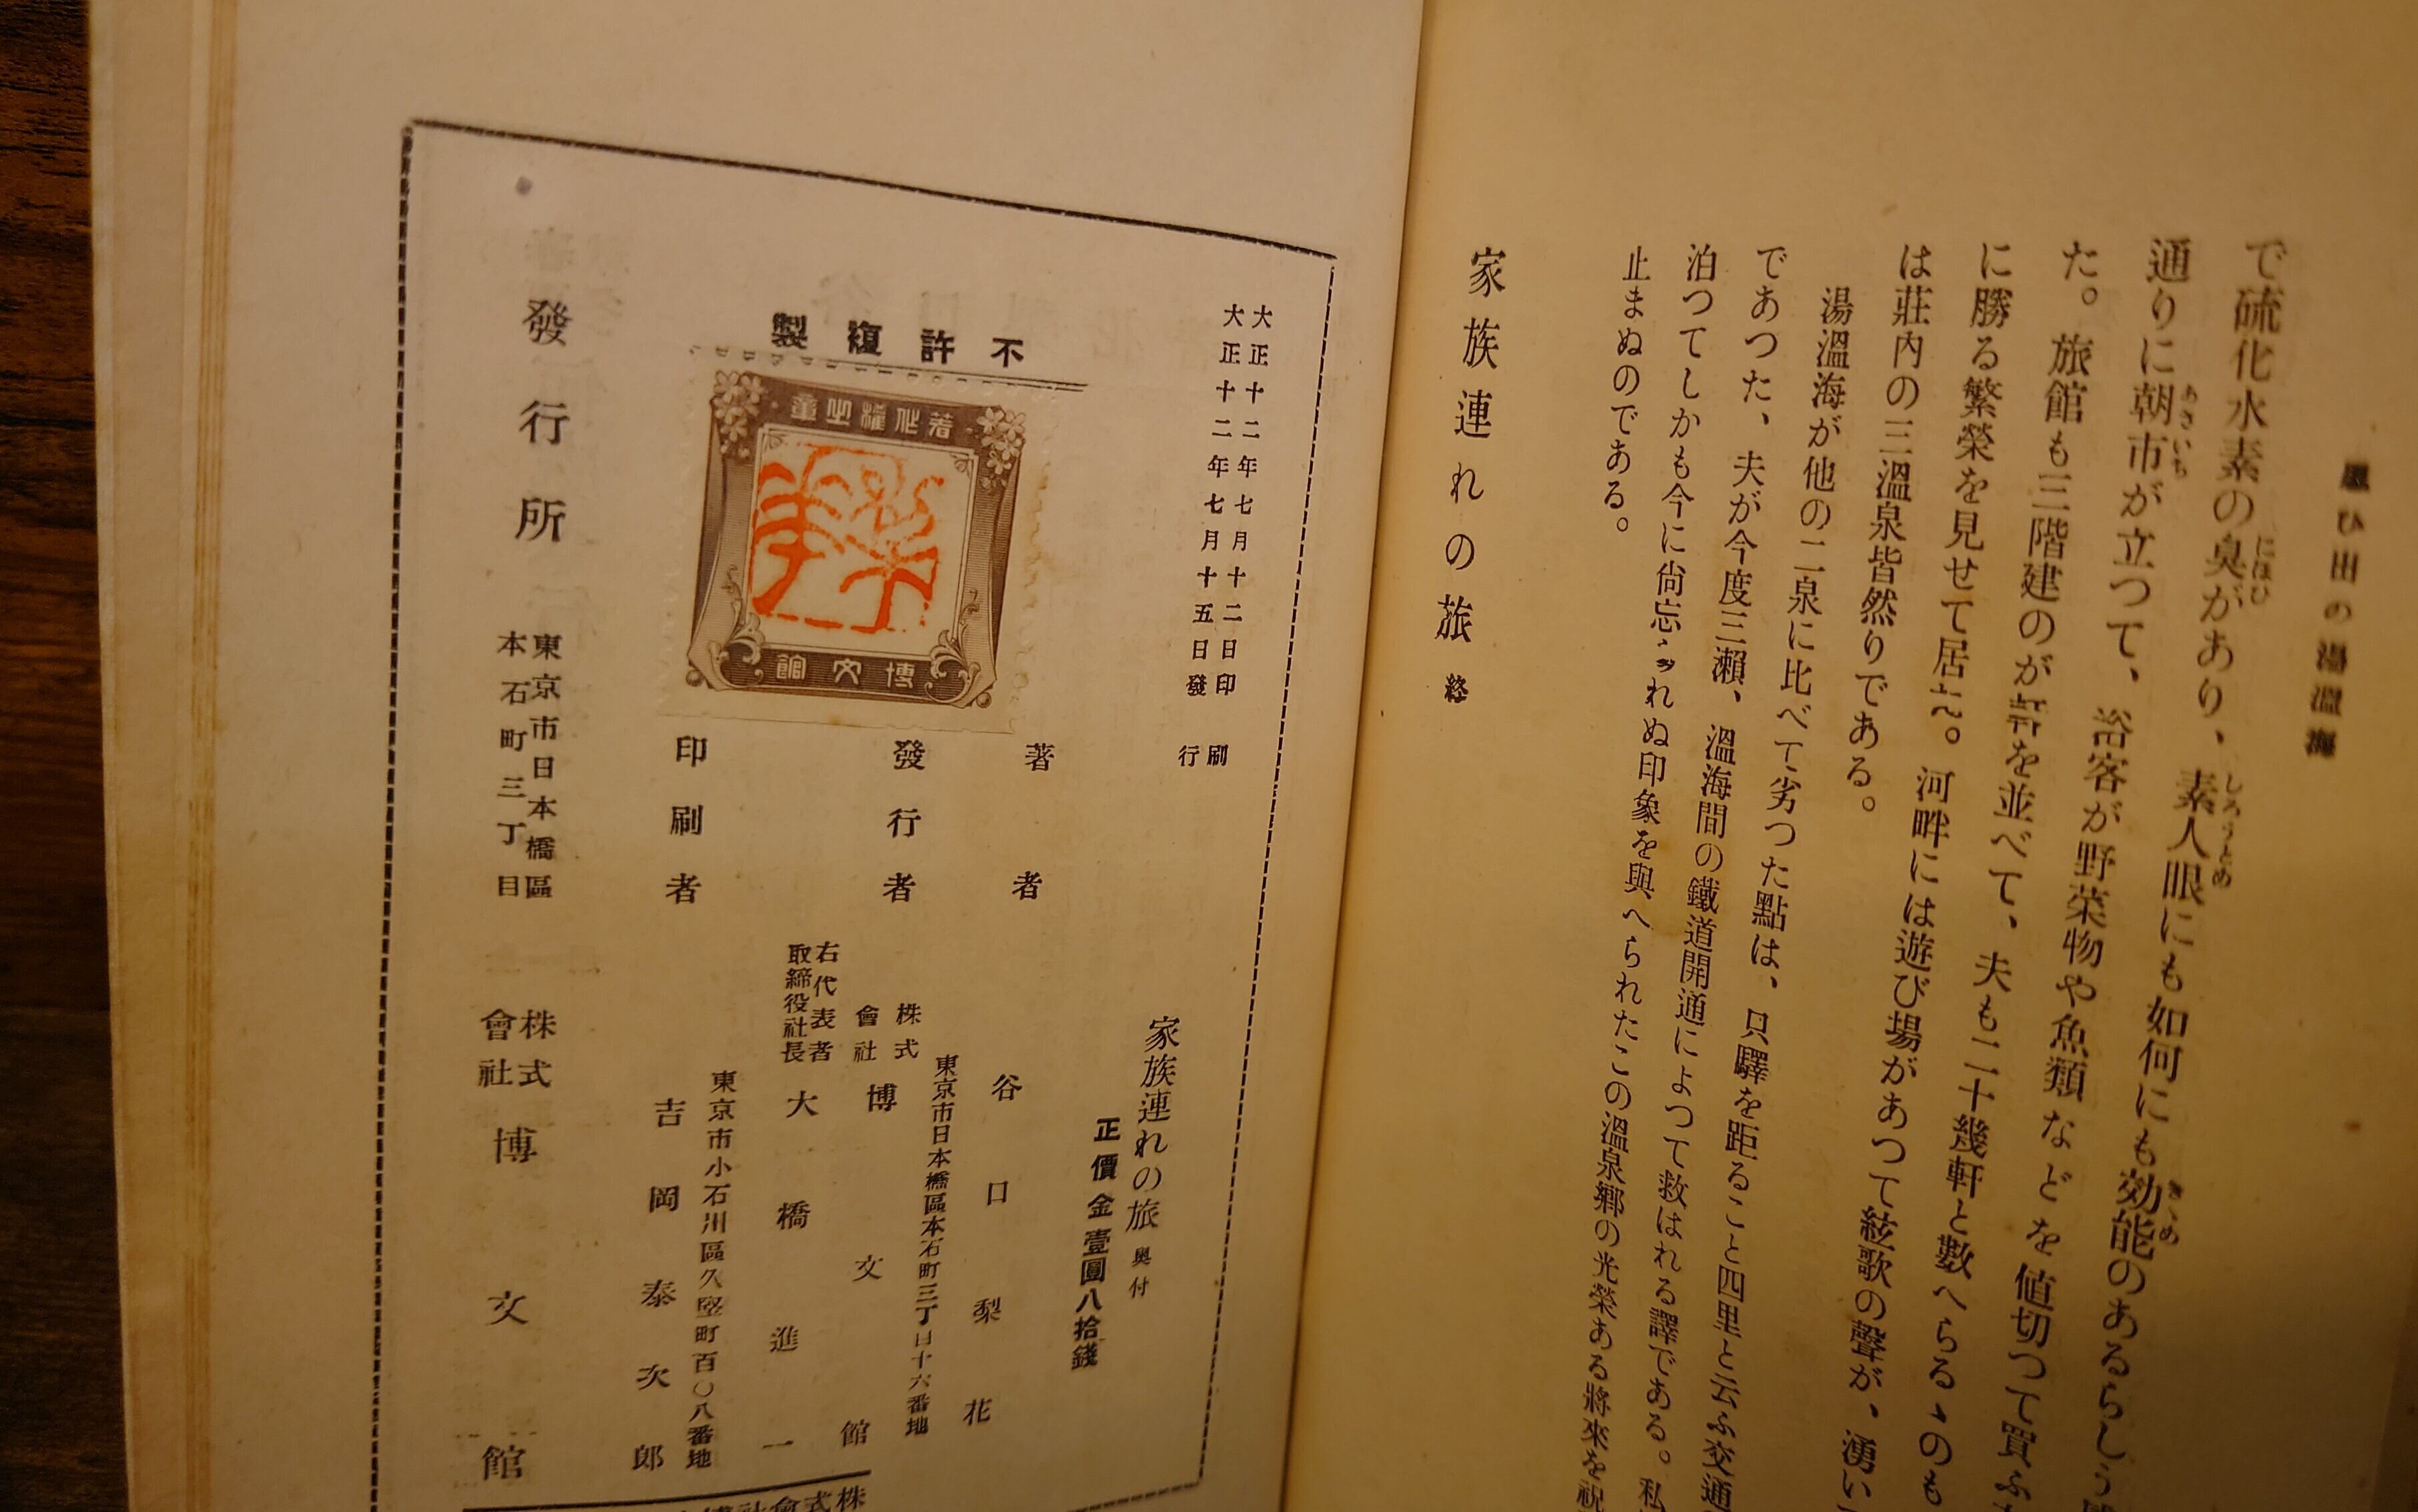 思ひ出の湯温海
で硫化水素の臭があり、素人眼にも如何にも効能のあるらしう
にほひ
しろうとめ
きゝめ
通りに朝市が立つて、浴客が野菜物や魚類などを値切つて買ふ
あさいち
た。旅館も三階建のが軒を並べて、夫も二十幾軒と數へらるゝのも
に勝る繁榮を見せて居た。河畔には遊び場があつて絃歌の聲が、湧い
は莊內の三溫泉皆然りである。
湯溫海が他の二泉に比べて劣つた點は、只驛を距ること四里と云ふ交通
であつた、夫が今度三瀨、溫海間の鐵道開通によつて救はれる譯である。私
泊つてしかも今に尙忘れぬ印象を與へられたこの溫泉鄕の光榮ある將來を祝
止まぬのである。
家族連れの旅 終
大正十二年七月十二日印刷
大正十二年七月十五日發行
家族連れの旅 奥付
正價金壹圓八拾錢
不許複製
著作權之章
博文館
著者 谷口梨花
東京市日本橋區本石町三丁目十六番地
發行者 株式會社 博文館
右代表者取締役社長 大橋進一
東京市小石川區久堅町百〇八番地
印刷者 吉岡泰次郎
發行所
東京市日本橋區
本石町三丁目
株式會社 博文館